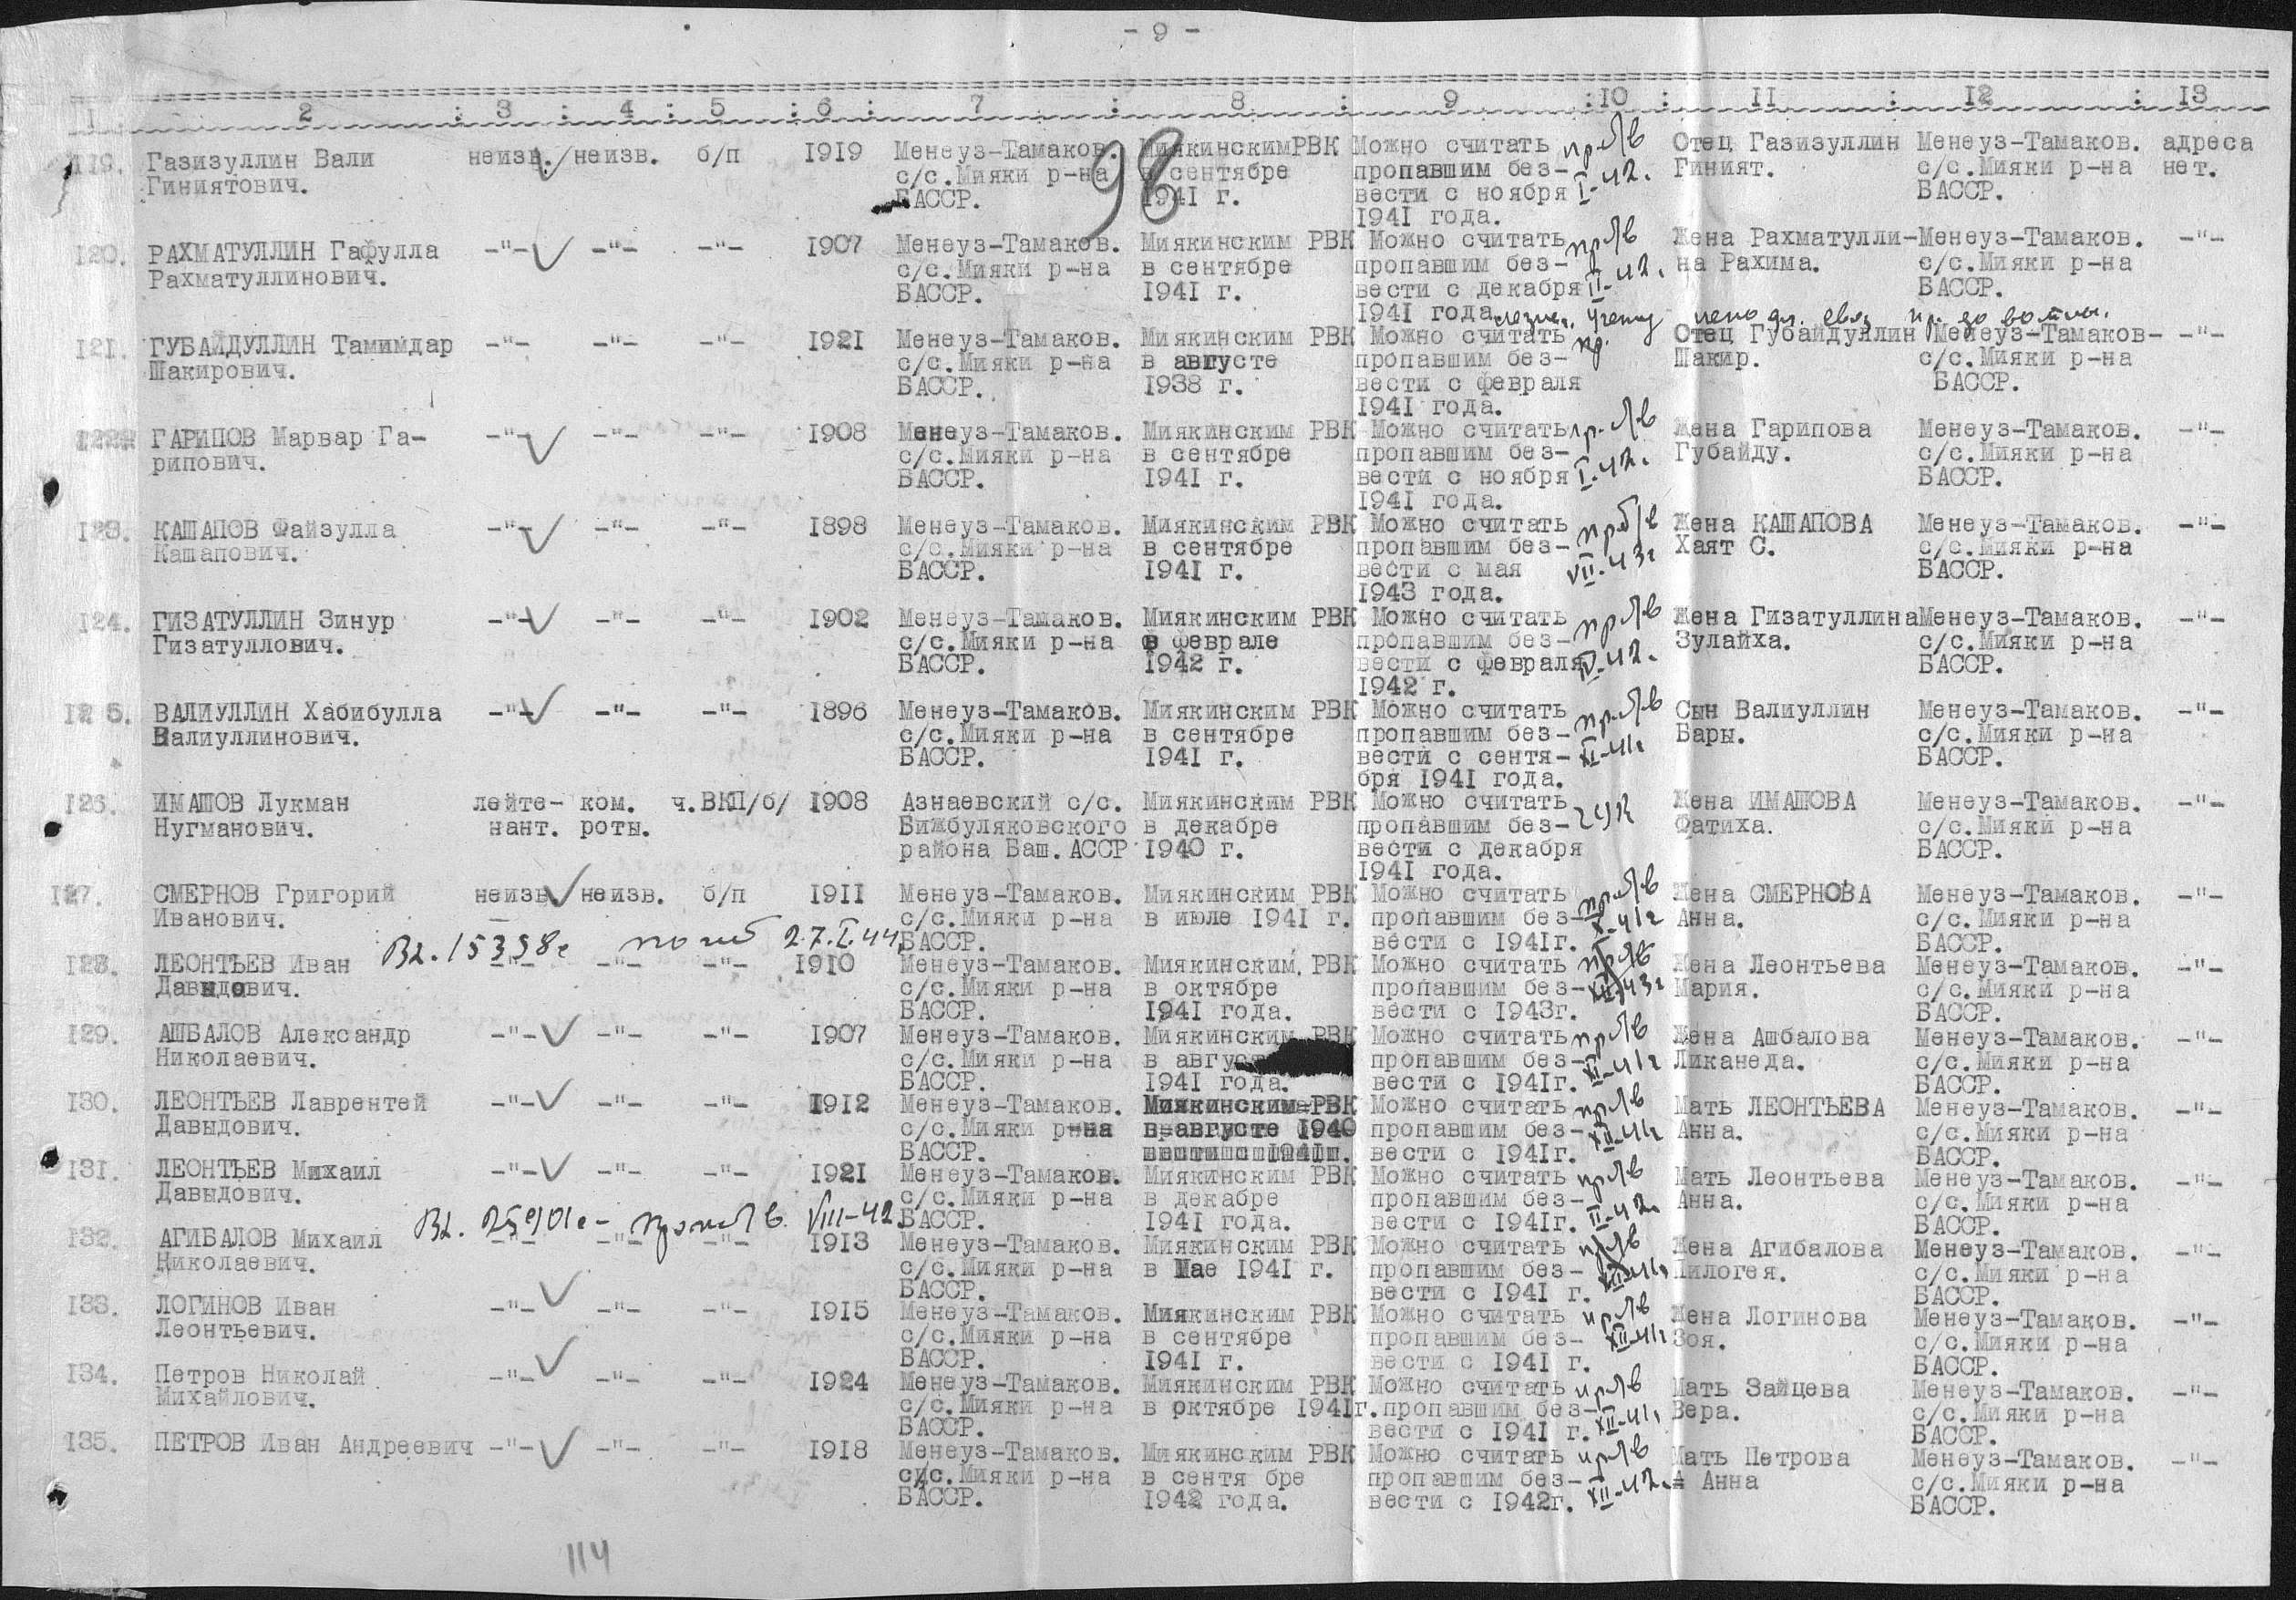 - 9 -
1 : 2 : 3 : 4 : 5 : 6 : 7 : 8 : 9 : 10 : 11 : 12 : 13
98
119. Газизуллин Вали неизв./неизв. б/п 1919 Менеуз-Тамаков. МиякинскимРВК Можно считать пр. б/в Отец Газизуллин Менеуз-Тамаков. адреса
Гиниятович. с/с.Мияки р-на в сентябре пропавшим без- I-42. Гиният. с/с.Мияки р-на нет.
БАССР. 1941 г. вести с ноября БАССР.
1941 года.
120. РАХМАТУЛЛИН Гафулла -"- -"- -"- 1907 Менеуз-Тамаков. Миякинским РВК Можно считать пр б/в Жена Рахматулли- Менеуз-Тамаков. -"-
Рахматуллинович. с/с.Мияки р-на в сентябре пропавшим без- II-42. на Рахима. с/с.Мияки р-на
БАССР. 1941 г. вести с декабря БАССР.
1941 года
121. ГУБАЙДУЛЛИН Тамимдар -"- -"- -"- 1921 Менеуз-Тамаков. Миякинским РВК Можно считать пр. Отец Губайдуллин Менеуз-Тамаков- -"-
Шакирович. с/с.Мияки р-на в августе пропавшим без- Шакир. с/с.Мияки р-на
БАССР. 1938 г. вести с февраля БАССР.
1941 года.
122. ГАРИПОВ Марвар Га- -"- -"- -"- 1908 Менеуз-Тамаков. Миякинским РВК Можно считать пр. б/в Жена Гарипова Менеуз-Тамаков. -"-
рипович. с/с.Мияки р-на в сентябре пропавшим без- I-42. Губайду. с/с.Мияки р-на
БАССР. 1941 г. вести с ноября БАССР.
1941 года.
123. КАШАПОВ Файзулла -"- -"- -"- 1898 Менеуз-Тамаков. Миякинским РВК Можно считать пр б/в Жена КАШАПОВА Менеуз-Тамаков. -"-
Кашапович. с/с.Мияки р-на в сентябре пропавшим без- VII-43г Хаят С. с/с.Мияки р-на
БАССР. 1941 г. вести с мая БАССР.
1943 года.
124. ГИЗАТУЛЛИН Зинур -"- -"- -"- 1902 Менеуз-Тамаков. Миякинским РВК Можно считать пр б/в Жена Гизатуллина Менеуз-Тамаков. -"-
Гизатуллович. с/с.Мияки р-на в феврале пропавшим без- IV-42. Зулайха. с/с.Мияки р-на
БАССР. 1942 г. вести с февраля БАССР.
1942 г.
125. ВАЛИУЛЛИН Хабибулла -"- -"- -"- 1896 Менеуз-Тамаков. Миякинским РВК Можно считать пр. б/в Сын Валиуллин Менеуз-Тамаков. -"-
Валиуллинович. с/с.Мияки р-на в сентябре пропавшим без- XI-41г Бары. с/с.Мияки р-на
БАССР. 1941 г. вести с сентя- БАССР.
бря 1941 года.
126. ИМАШОВ Лукман лейте- ком. ч.ВКП/б/ 1908 Азнаевский с/с. Миякинским РВК Можно считать Жена ИМАШОВА Менеуз-Тамаков. -"-
Нугманович. нант. роты. Бижбуляковского в декабре пропавшим без- ГУК Фатиха. с/с.Мияки р-на
района Баш.АССР 1940 г. вести с декабря БАССР.
1941 года.
127. СМЕРНОВ Григорий неизв неизв. б/п 1911 Менеуз-Тамаков. Миякинским РВК Можно считать пр б/в Жена СМЕРНОВА Менеуз-Тамаков. -"-
Иванович. с/с.Мияки р-на в июле 1941 г. пропавшим без- X-41г Анна. с/с.Мияки р-на
Вх. 15398с погиб 27.I.44. БАССР. вести с 1941г. БАССР.
128. ЛЕОНТЬЕВ Иван -"- -"- -"- 1910 Менеуз-Тамаков. Миякинским. РВК Можно считать пр б/в Жена Леонтьева Менеуз-Тамаков. -"-
Давыдович. с/с.Мияки р-на в октябре пропавшим без- XII-43г Мария. с/с.Мияки р-на
БАССР. 1941 года. вести с 1943г. БАССР.
129. АШБАЛОВ Александр -"- -"- -"- 1907 Менеуз-Тамаков. Миякинским РВК Можно считать пр б/в Жена Ашбалова Менеуз-Тамаков. -"-
Николаевич. с/с.Мияки р-на в авгус пропавшим без- XI-41г Ликанеда. с/с.Мияки р-на
БАССР. 1941 года. вести с 1941г. БАССР.
130. ЛЕОНТЬЕВ Лаврентей -"- -"- -"- 1912 Менеуз-Тамаков. Миякинским РВК Можно считать пр б/в Мать ЛЕОНТЬЕВА Менеуз-Тамаков. -"-
Давыдович. с/с.Мияки р-на в августе 1940 пропавшим без- XII-41г Анна. с/с.Мияки р-на
БАССР. вести с 1941г. БАССР.
131. ЛЕОНТЬЕВ Михаил -"- -"- -"- 1921 Менеуз-Тамаков. Миякинским РВК Можно считать пр б/в Мать Леонтьева Менеуз-Тамаков. -"-
Давыдович. с/с.Мияки р-на в декабре пропавшим без- II-42. Анна. с/с.Мияки р-на
VIII-42. БАССР. 1941 года. вести с 1941г. БАССР.
132. АГИБАЛОВ Михаил -"- -"- -"- 1913 Менеуз-Тамаков. Миякинским РВК Можно считать пр б/в Жена Агибалова Менеуз-Тамаков. -"-
Николаевич. с/с.Мияки р-на в Мае 1941 г. пропавшим без- XII-41г Пилогея. с/с.Мияки р-на
БАССР. вести с 1941 г. БАССР.
133. ЛОГИНОВ Иван -"- -"- -"- 1915 Менеуз-Тамаков. Миякинским РВК Можно считать пр б/в Жена Логинова Менеуз-Тамаков. -"-
Леонтьевич. с/с.Мияки р-на в сентябре пропавшим без- XII-41г Зоя. с/с.Мияки р-на
БАССР. 1941 г. вести с 1941 г. БАССР.
134. Петров Николай -"- -"- -"- 1924 Менеуз-Тамаков. Миякинским РВК Можно считать пр б/в Мать Зайцева Менеуз-Тамаков. -"-
Михайлович. с/с.Мияки р-на в октябре 1941г. пропавшим без- XII-41г Вера. с/с.Мияки р-на
БАССР. вести с 1941 г. БАССР.
135. ПЕТРОВ Иван Андреевич -"- -"- -"- 1918 Менеуз-Тамаков. Миякинским РВК Можно считать пр б/в Мать Петрова Менеуз-Тамаков. -"-
с/с.Мияки р-на в сентя бре пропавшим без- XII-42. Анна с/с.Мияки р-на
БАССР. 1942 года. вести с 1942г. БАССР.
114